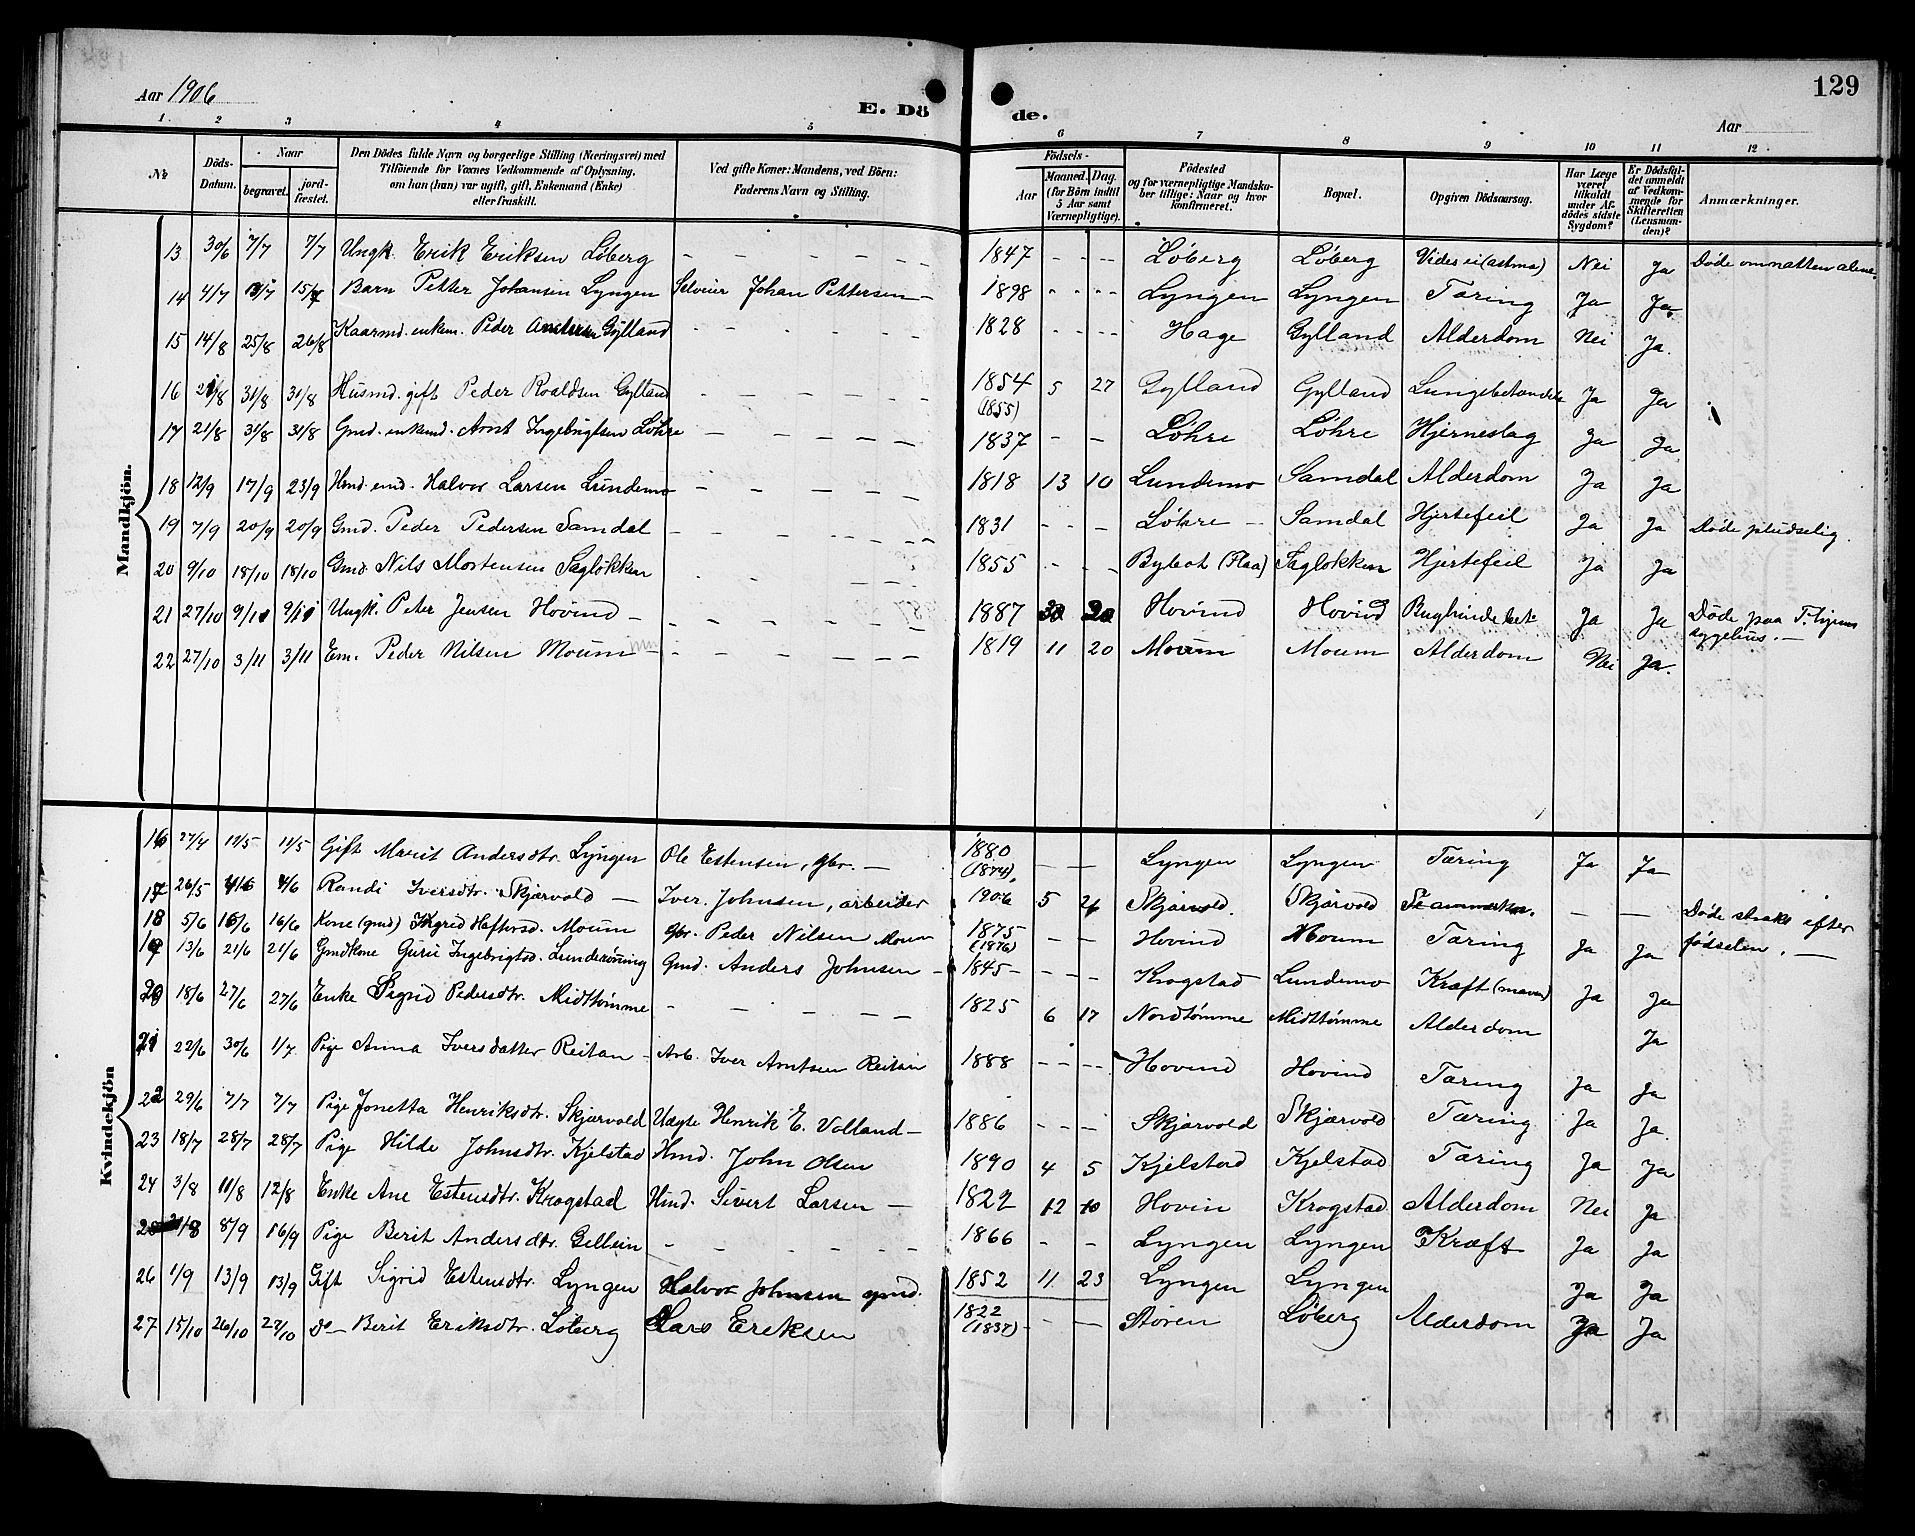 129
Aar 1906
E. Dö de.
Aar
1. 2 3 4 5 6 7 8 9 10 11 12
№ Döds-Datum. Naar begravet. jord-fæstet. Den Dödes fulde Navn og borgerlige Stilling (Næringsvei) med Tilföiende for Voxnes Vedkommende af Oplysning, om han (hun) var ugift, gift, Enkemand (Enke) eller fraskilt. Ved gifte Koner: Mandens, ved Börn: Faderens Navn og Stilling. Födsels- Aar Maaned. Dag. (for Börn indtil 5 Aar samt Værnepligtige). Födested og for værnepligtige Mandskaber tillige: Naar og hvor konfirmeret. Bopæl. Opgiven Dödsaarsag. Har Læge været tilkaldt under Afdödes sidste Sygdom? Er Dödsfaldet anmeldt af Vedkommende for Skifteretten (Lensmanden)? Anmærkninger.
Mandkjön.
13 30/6 7/7 7/7 Ungk. Erik Eriksen Löberg 1847 Löberg Löberg Vides ei (astma) Nei Ja Döde om natten alene
14 4/7 15/7 Barn Petter Johansen Lyngen Selveier Johan Pettersen 1898 Lyngen Lyngen Tæring Ja Ja
15 14/8 25/8 26/8 Kaarmd. enkem. Peder Gylland 1828 Hage Gylland Alderdom Nei Ja.
16 21/8 31/8 31/8 Husmd. gift Peder Roaldsen Gylland 1854 (1855) 5 27 Gylland Gylland Lungebetændelse Ja Ja
17 21/8 31/8 31/8 Gmd. enkemd. Arnt Ingebrigtsen Löhre 1837 Löhre Löhre Hjerneslag Ja Ja
18 12/9 17/9 23/9 Hmd. emd. Halvor Larsen Lundemo 1818 13 10 Lundemo Samdal Alderdom Ja Ja
19 7/9 20/9 20/9 Gmd. Peder Pedersen Samdal 1831 Löhre Samdal Hjertefeil Ja Ja Döde pludselig.
20 9/10 18/10 18/10 Gmd. Nils Mortensen Saglökken 1855 (Flaa) Saglökken Hjertefeil Ja Ja
21 27/10 9/11 9/11 Ungk. Peter Jensen Hovind 1887 20 Hovind Hovind Bughindebet. Ja Ja Döde paa T.hjems sygehus.
22 27/10 3/11 3/11 Em. Peder Nilsen Moum 1819 11 20 Moum Moum Alderdom Nei Ja.
Kvindekjön
16 27/4 11/5 11/5 Gift Marit Andersdtr. Lyngen Ole Estensen, gbr. 1880 (1874). Lyngen Lyngen Tæring Ja Ja
17 26/5 4/6 4/6 Randi Iversdtr. Skjærvold Iver Johnsen, arbeider 1906 5 26 Skjærvold. Skjærvold Döde straks efter födselen.
18 5/6 16/6 16/6 Kone (gmd) Ingrid Haftorsd. Moum Gbr. Peder Nilsen Moum 1875 (1876) Hovind Moum Tæring Ja Ja
19 13/6 21/6 21/6 Gmdkone Guru Ingebrigtsd. Lunderönning Gmd. Anders Johnsen 1845 Krogstad Lundemo Kræft (maven) Ja Ja
20 18/6 27/6 27/6 Enke Sigrid Pedersdtr. Midttömme 1825 6 17 Nordtömme Midttömme Alderdom Ja
21 22/6 30/6 1/7 Pige Anna Iversdatter Reitan Arb. Iver Arntsen Reitan 1888 Hovind Hovind Tæring Ja Ja
22 29/6 7/7 7/7 Pige Jonetta Henriksdtr. Skjærvold Henrik E. Volland 1886 Skjærvold Skjærvold Tæring Ja Ja.
23 18/7 28/7 28/7 Pige Hilde Johnsdtr. Kjelstad Hmd. John Olsen 1890 4 5 Kjelstad Kjelstad Tæring Ja Ja
24 3/8 11/8 12/8 Enke Ane Estensdtr. Krogstad Hmd. Sivert Larsen 1822 12 10 Hovin Krogstad Alderdom Nei Ja
25 8/9 16/9 Pige Berit Andersdtr. Gellein 1866 Lyngen Lyngen Kræft Ja Ja
26 1/9 13/9 13/9 Gift Sigrid Estensdtr. Lyngen Halvor Johnsen gmd. 1852 11 23 Lyngen Lyngen Ja Ja
27 15/10 26/10 27/10 do Berit Eriksdtr. Löberg Lars Eriksen 1822 (1837) Stören Löberg Alderdom Ja Ja